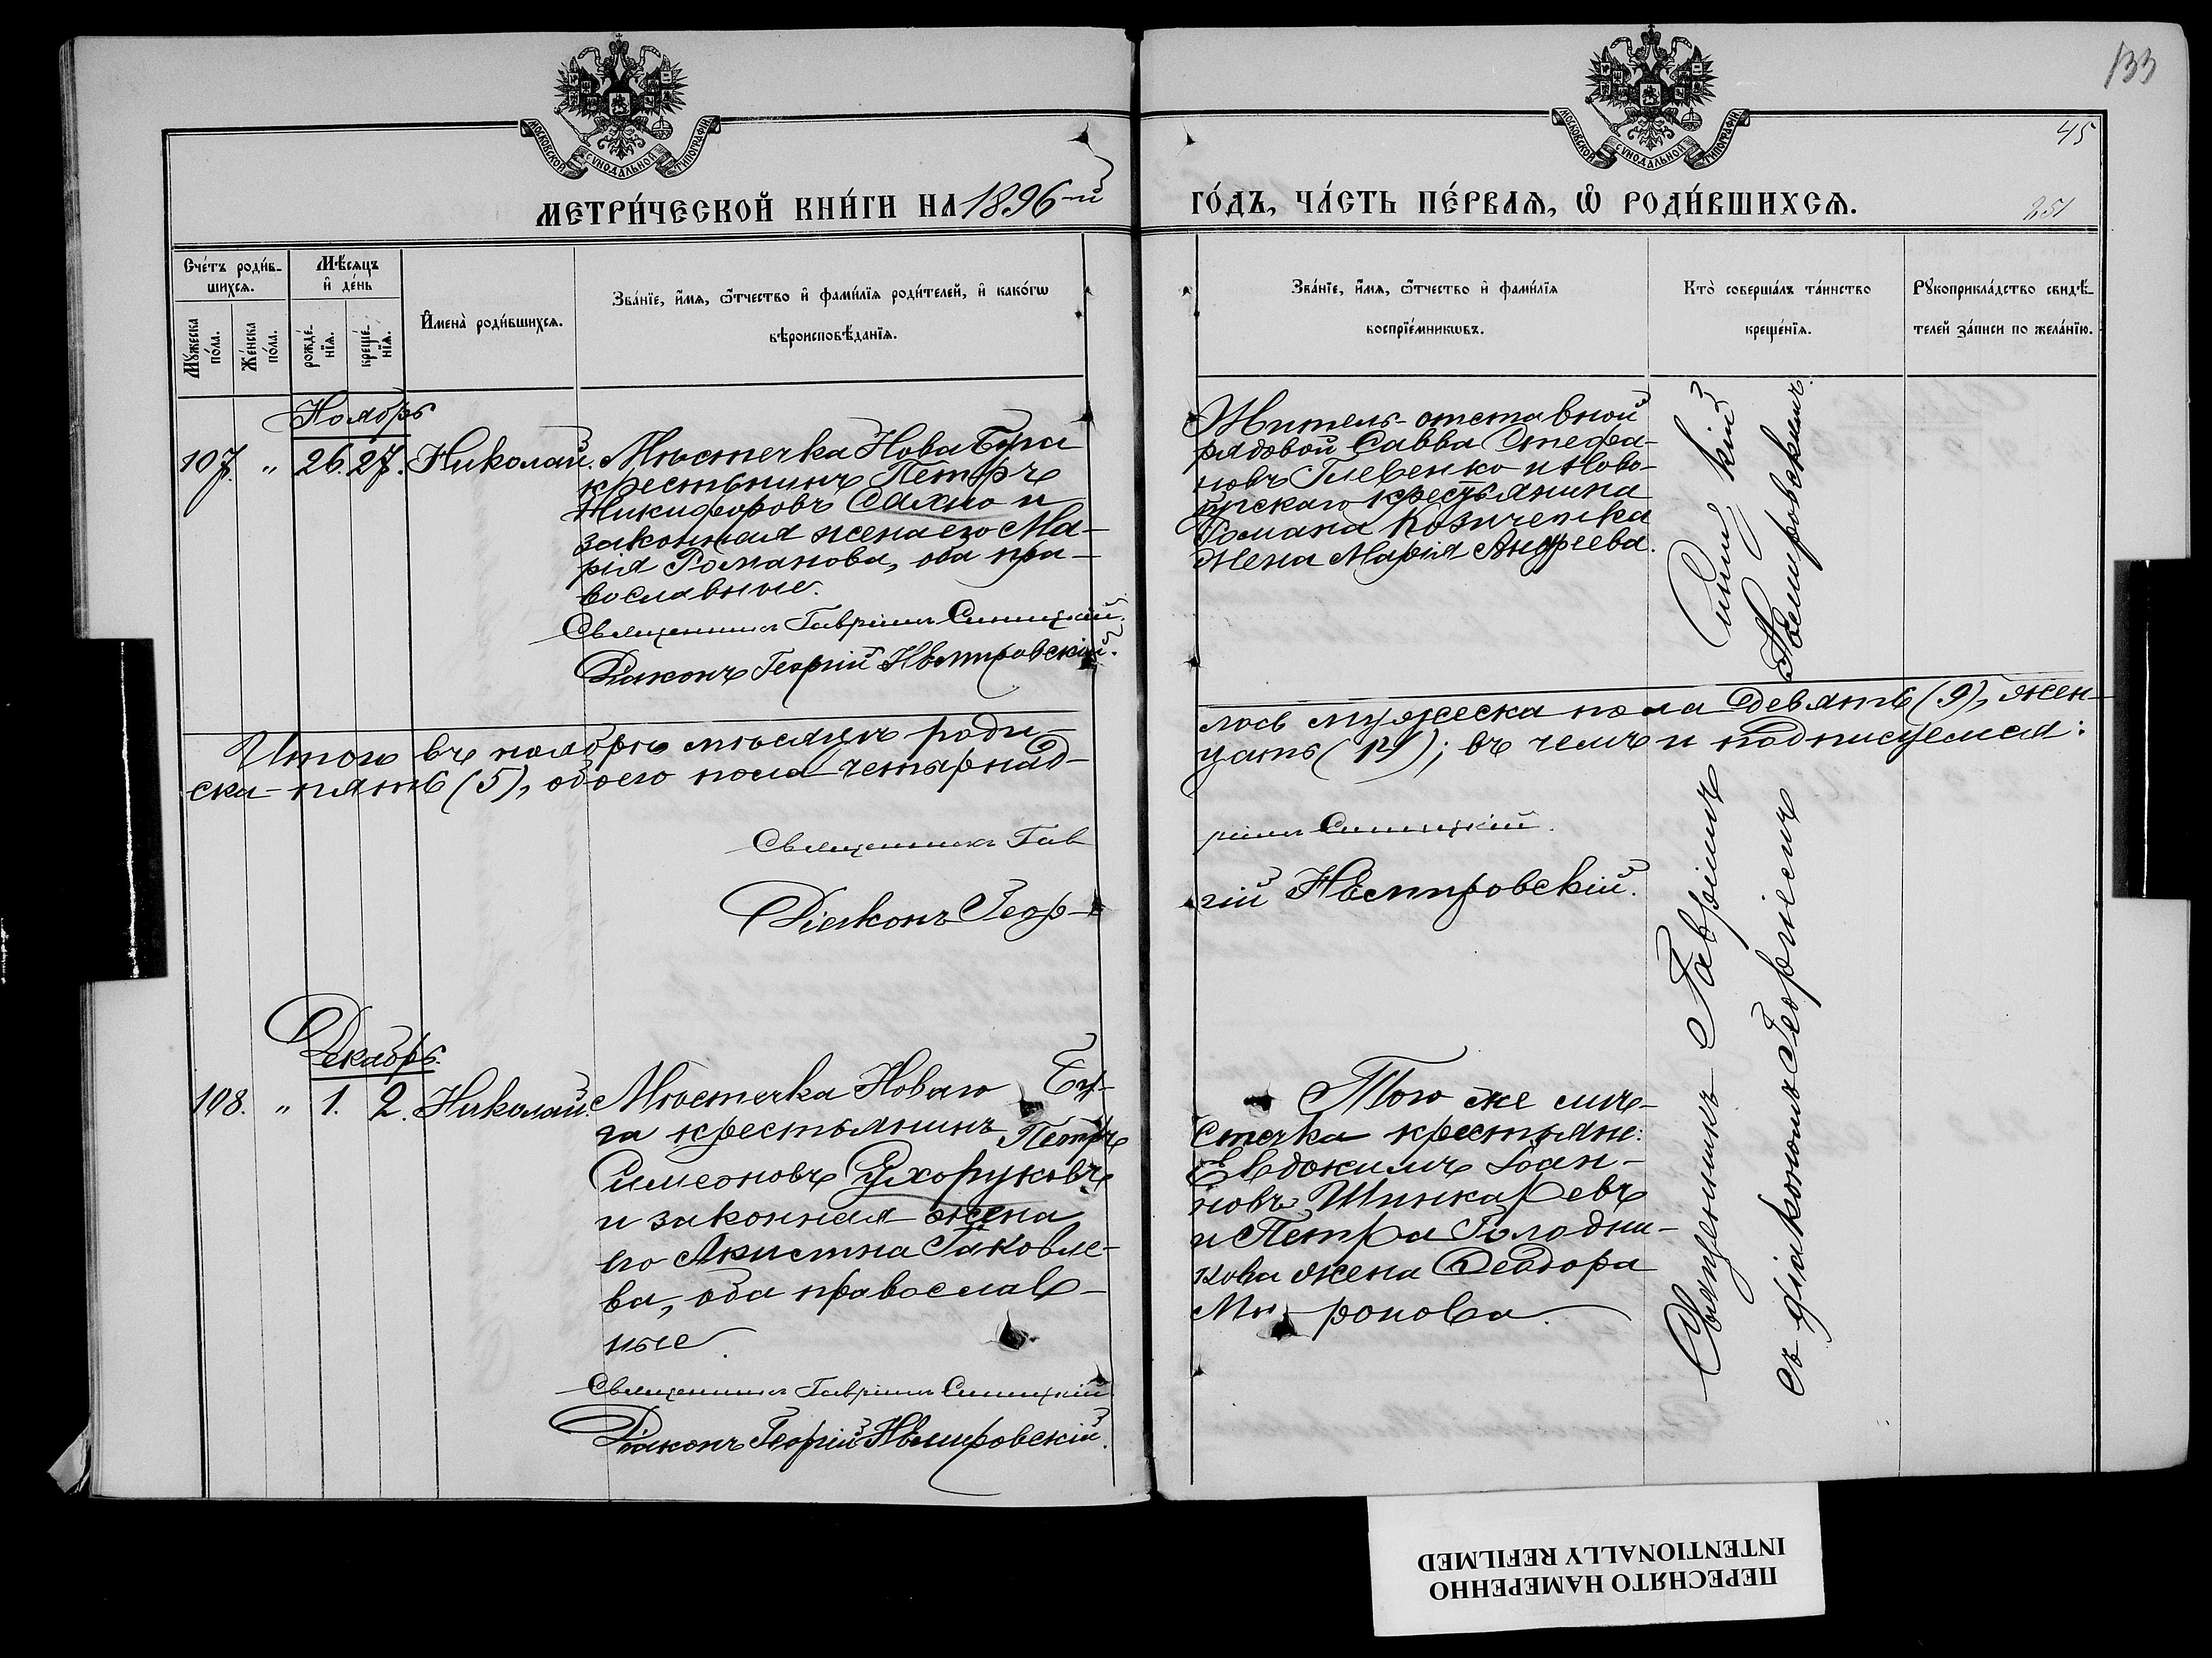 133
МОСКОВСКОЙ СѴНОДАЛЬНОЙ ТИПОГРАФІИ
МОСКОВСКОЙ СѴНОДАЛЬНОЙ ТИПОГРАФІИ
45
МЕТРИ́ЧЕСКОЙ КНИ́ГИ НА 1896-й
ГО́ДЪ, ЧА́СТЬ ПЕ́РВАѦ, Ѡ РОДИ́ВШИХСѦ.
251
Сче́тъ роди́в-
шихсѧ.
Мѣ́сѧцъ
и де́нь
Мꙋ́жеска
по́ла.
Же́нска
по́ла.
рожде́-
нїѧ.
креще́-
нїѧ.
Имена̀ роди́вшихсѧ.
Зва́нїе, и́мѧ, ѻ҆́тчество и фами́лїѧ роди́телей, и како́гѡ
вѣроисповѣ́данїѧ.
Зва́нїе, и́мѧ, ѻ҆́тчество и фами́лїѧ
воспрїе́мникѡвъ.
Кто̀ соверша́лъ та́инство
креще́нїѧ.
Рꙋкоприкла́дство свидѣ́-
телей за́писи по жела́нїю.
Ноябрь
107. " 26. 27. Николай.
Мѣстечка Нова Буга
крестьянинъ Петръ
Никифоровъ Сахно и
законная жена его Ма-
рія Романова, оба пра-
вославные.
Священникъ Гавріилъ Синицкій.
Діаконъ Георгій Нѣмировскій.
Житель-отставной
рядовой Савва Стефа-
новъ Глевенко и Ново-
бугскаго крестьянина
Романа
жена Марія Андреева.
Итого въ ноябрѣ мѣсяцѣ роди-
лось мужеска пола девять (9), жен-
ска-пять (5), обоего пола четырнад-
цать (14); въ чемъ и подписуемся:
Священникъ Гав
ріилъ Синицкій.
Діаконъ Геор-
гій Нѣмировскій.
Декабрь.
108. " 1. 2. Николай.
Мѣстечка Новаго Бу-
га крестьянинъ Петръ
Симеоновъ Сухоруковъ
и законная жена
его Акистна Іаковле-
ва, оба православ-
ные.
Священникъ Гавріилъ Синицкій
Діаконъ Георгій Нѣмировскій.
Того же мѣ-
стечка крестьяне:
Евдокимъ Іоан-
новъ Шинкаревъ
и Петра Голодни-
кова жена Ѳеодора
Миронова.
Священникъ Гавріилъ Синицкій
съ діакономъ Георгіемъ Нѣмировскимъ.
ПЕРЕСНЯТО НАМЕРЕННО
INTENTIONALLY REFILMED